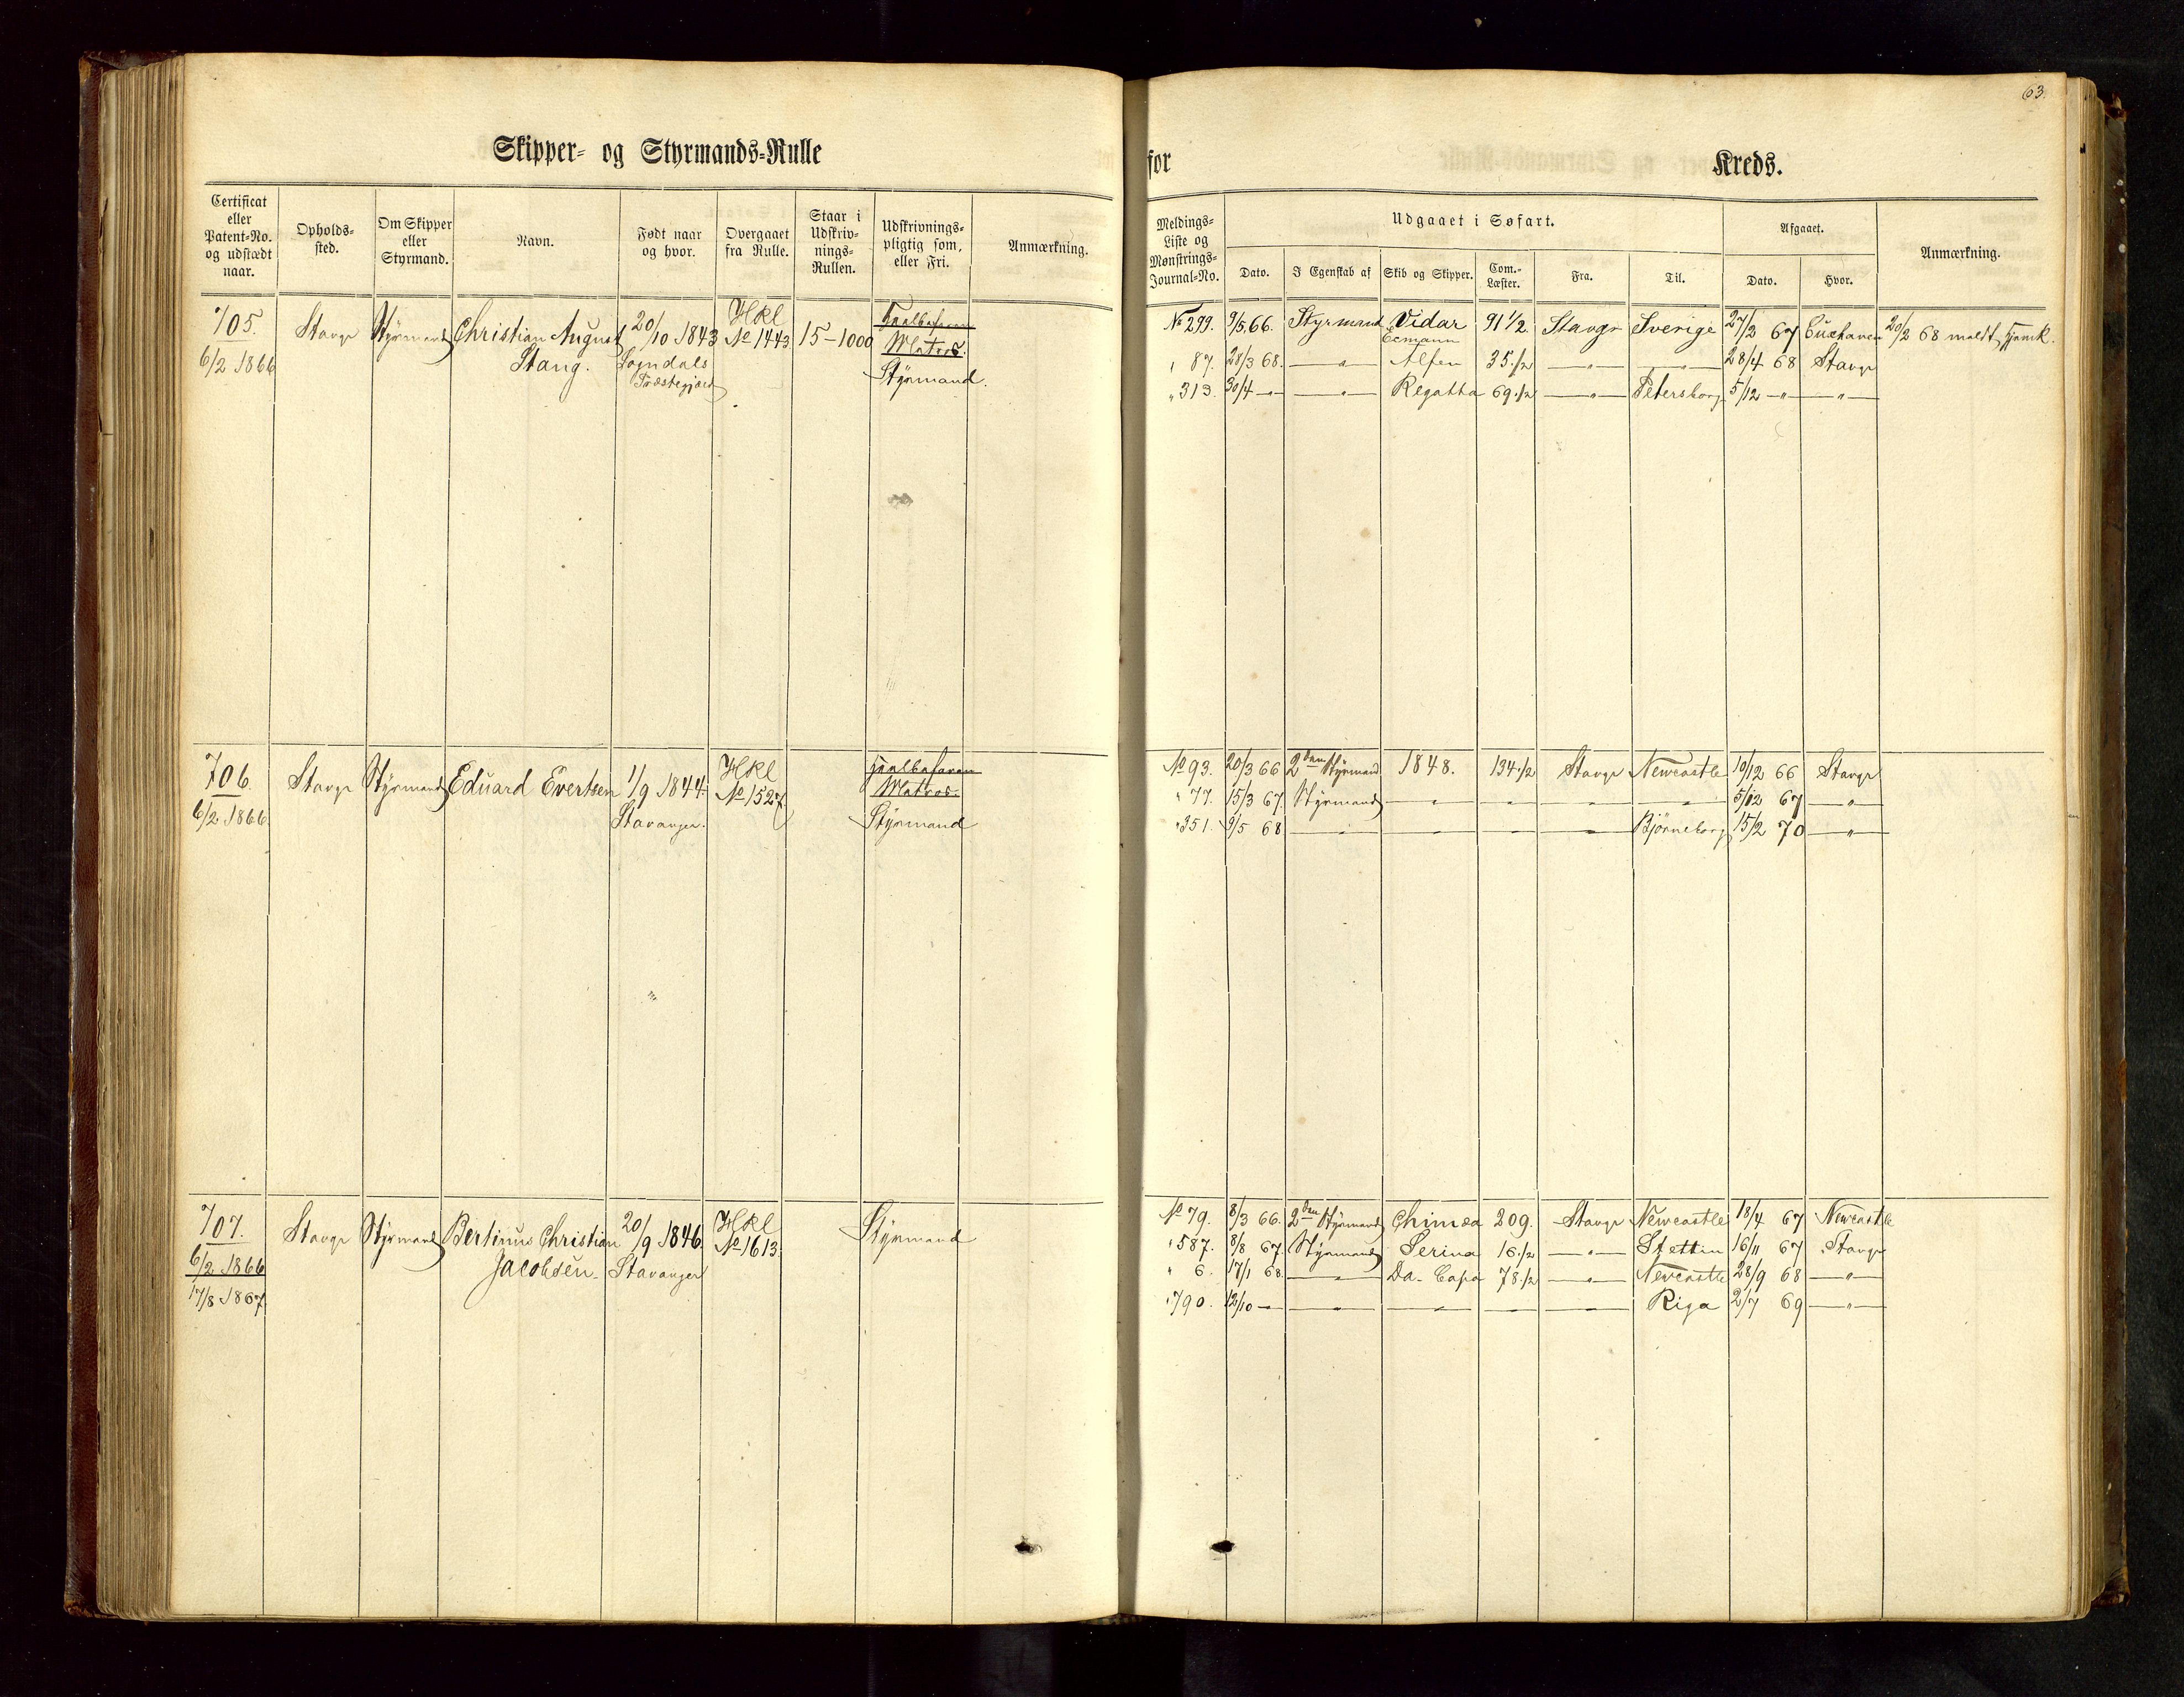 63.
Skipper- og Styrmands-Rulle
for Kreds.
Certificat eller Patent-No. og udstædt naar.
Opholds-sted.
Om Skipper eller Styrmand.
Navn.
Født naar og hvor.
Overgaaet fra Rulle.
Staar i Udskriv-nings-Rullen.
Udskrivnings-pligtig som, eller Fri.
Anmærkning.
Meldings-Liste og Mønstrings-Journal-No.
Udgaaet i Søfart.
Dato.
I Egenskab af
Skib og Skipper.
Com.-Læster.
Fra.
Til.
Afgaaet.
Dato.
Hvor.
Anmærkning.
705. Stavgr Styrmand Christian August 20/10 1843 Hkl No 1443 15-1000 Matros.
6/2 1866 Stang. Sogndals Præstegjæld Styrmand.
No 299. 9/5 66. Styrmand Vidar 91 1/2 Stavgr Sverige 27/3 67 Cuxhaven 20/2 68 meldt hjemk.
" 87. 28/3 68. — " — Alfen 35 1/2 — " — — " — 28/4 68 Stavgr
" 313. 30/4 — " — — " — Regatta 69 1/2 — " — Petersborg 5/12 — " — — " —
706. Stavgr Styrmand Eduard Evertsen 1/9 1844. Hkl No 1527 Matros.
6/2 1866. Stavanger. Styrmand
No 93. 20/3 66 2den Styrmand 1848. 134 1/2 Stavgr Newcastle 10/12 66 Stavgr
" 77. 15/3 67. Styrmand — " — — " — — " — — " — 5/12 67 — " —
" 351. 9/5 68 — " — — " — — " — — " — Bjørneborg 15/2 70 — " —
707. Stavgr Styrmand Bertinus Christian 20/9 1846. Hkl No 1613. Styrmand
6/2 1866 Jacobsen. Stavanger
17/8 1867.
No 79. 8/3 66. 2den Styrmand Chimæa 209. Stavgr Newcastle 18/4 67 Newcastle
" 587. 8/8 67. Styrmand Serina 16 1/2 — " — Stettin 16/11 67 Stavgr
" 6. 17/1 68. — " — Da-Capo 78 1/2 — " — Newcastle 28/9 68 — " —
" 790. 12/10 — — " — — " — — " — — " — Riga 2/7 69 — " —